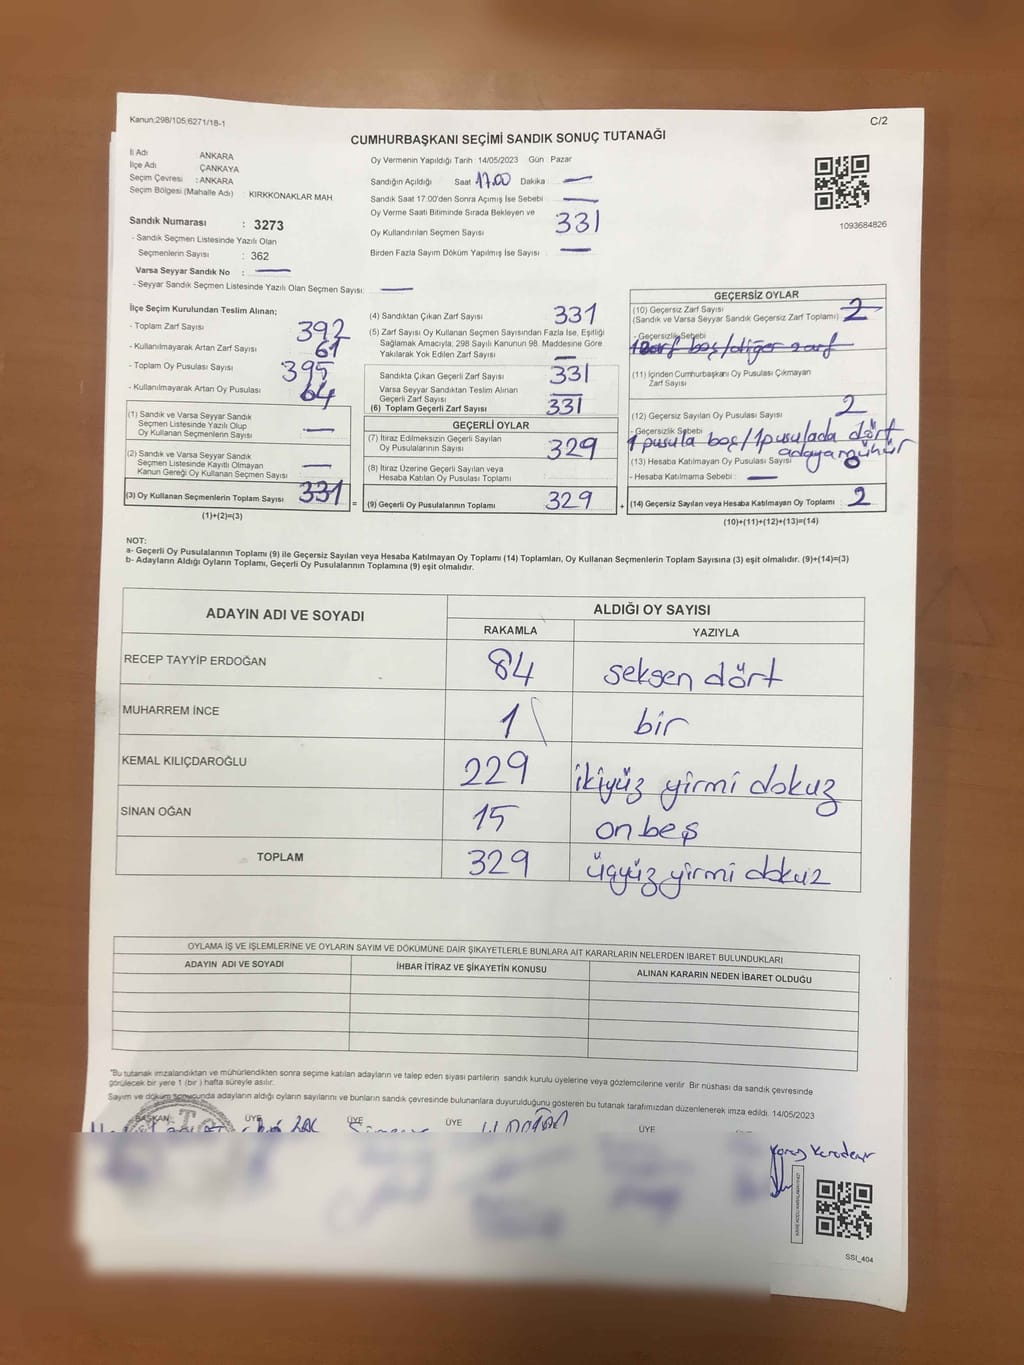 Kanun;298/105;6271/18-1
C/2
CUMHURBAŞKANI SEÇİMİ SANDIK SONUÇ TUTANAĞI
İl Adı ANKARA
İlçe Adı ÇANKAYA
Seçim Çevresi : ANKARA
Seçim Bölgesi (Mahalle Adı) : KIRKKONAKLAR MAH
Sandık Numarası : 3273
- Sandık Seçmen Listesinde Yazılı Olan
Seçmenlerin Sayısı : 362
Varsa Seyyar Sandık No :
- Seyyar Sandık Seçmen Listesinde Yazılı Olan Seçmen Sayısı:
Oy Vermenin Yapıldığı Tarih : 14/05/2023 Gün Pazar
Sandığın Açıldığı Saat 17.00 Dakika :
Sandık Saat 17:00'den Sonra Açımış İse Sebebi
Oy Verme Saati Bitiminde Sırada Bekleyen ve
Oy Kullandırılan Seçmen Sayısı 331
Birden Fazla Sayım Döküm Yapılmış İse Sayısı :
1093684826
İlçe Seçim Kurulundan Teslim Alınan;
- Toplam Zarf Sayısı 392
- Kullanılmayarak Artan Zarf Sayısı 61
- Toplam Oy Pusulası Sayısı 395
- Kullanılmayarak Artan Oy Pusulası 64
(1) Sandık ve Varsa Seyyar Sandık
Seçmen Listesinde Yazılı Olup
Oy Kullanan Seçmenlerin Sayısı
(2) Sandık ve Varsa Seyyar Sandık
Seçmen Listesinde Kayıtlı Olmayan
Kanun Gereği Oy Kullanan Seçmen Sayısı
(3) Oy Kullanan Seçmenlerin Toplam Sayısı 331
(1)+(2)=(3)
(4) Sandıktan Çıkan Zarf Sayısı 331
(5) Zarf Sayısı Oy Kullanan Seçmen Sayısından Fazla İse, Eşitliği
Sağlamak Amacıyla, 298 Sayılı Kanunun 98. Maddesine Göre
Yakılarak Yok Edilen Zarf Sayısı
Sandıkta Çıkan Geçerli Zarf Sayısı 331
Varsa Seyyar Sandıktan Teslim Alınan
Geçerli Zarf Sayısı
(6) Toplam Geçerli Zarf Sayısı 331
GEÇERLİ OYLAR
(7) İtiraz Edilmeksizin Geçerli Sayılan
Oy Pusulalarının Toplamı 329
(8) İtiraz Üzerine Geçerli Sayılan veya
Hesaba Katılan Oy Pusulası Toplamı
= (9) Geçerli Oy Pusulalarının Toplamı 329 +
GEÇERSİZ OYLAR
(10) Geçersiz Zarf Sayısı
(Sandık ve Varsa Seyyar Sandık Geçersiz Zarf Toplamı) 2
- Geçersizlik Sebebi
1 zarf boş/diğer zarf
(11) İçinden Cumhurbaşkanı Oy Pusulası Çıkmayan
Zarf Sayısı
(12) Geçersiz Sayılan Oy Pusulası Sayısı 2
- Geçersizlik Sebebi
1 pusula boş/1 pusulada dört
adaya mühür
(13) Hesaba Katılmayan Oy Pusulası Sayısı
- Hesaba Katılmama Sebebi :
(14) Geçersiz Sayılan veya Hesaba Katılmayan Oy Toplamı 2
(10)+(11)+(12)+(13)=(14)
NOT:
a- Geçerli Oy Pusulalarının Toplamı (9) ile Geçersiz Sayılan veya Hesaba Katılmayan Oy Toplamı (14) Toplamları, Oy Kullanan Seçmenlerin Toplam Sayısına (3) eşit olmalıdır. (9)+(14)=(3)
b- Adayların Aldığı Oyların Toplamı, Geçerli Oy Pusulalarının Toplamına (9) eşit olmalıdır.
ADAYIN ADI VE SOYADI ALDIĞI OY SAYISI
RAKAMLA YAZIYLA
RECEP TAYYİP ERDOĞAN 84 seksen dört
MUHARREM İNCE 1 bir
KEMAL KILIÇDAROĞLU 229 ikiyüz yirmi dokuz
SİNAN OĞAN 15 on beş
TOPLAM 329 üçyüz yirmi dokuz
OYLAMA İŞ VE İŞLEMLERİNE VE OYLARIN SAYIM VE DÖKÜMÜNE DAİR ŞİKAYETLERLE BUNLARA AİT KARARLARIN NELERDEN İBARET BULUNDUKLARI
ADAYIN ADI VE SOYADI İHBAR İTİRAZ VE ŞİKAYETİN KONUSU ALINAN KARARIN NEDEN İBARET OLDUĞU
"Bu tutanak imzalandıktan ve mühürlendikten sonra seçime katılan adayların ve talep eden siyasi partilerin sandık kurulu üyelerine veya gözlemcilerine verilir. Bir nüshası da sandık çevresinde
görülecek bir yere 1 (bir ) hafta süreyle asılır.
Sayım ve döküm sonucunda adayların aldığı oyların sayılarını ve bunların sandık çevresinde bulunanlara duyurulduğunu gösteren bu tutanak tarafımızdan düzenlenerek imza edildi. 14/05/2023
BAŞKAN ÜYE ÜYE ÜYE ÜYE
SSI_404